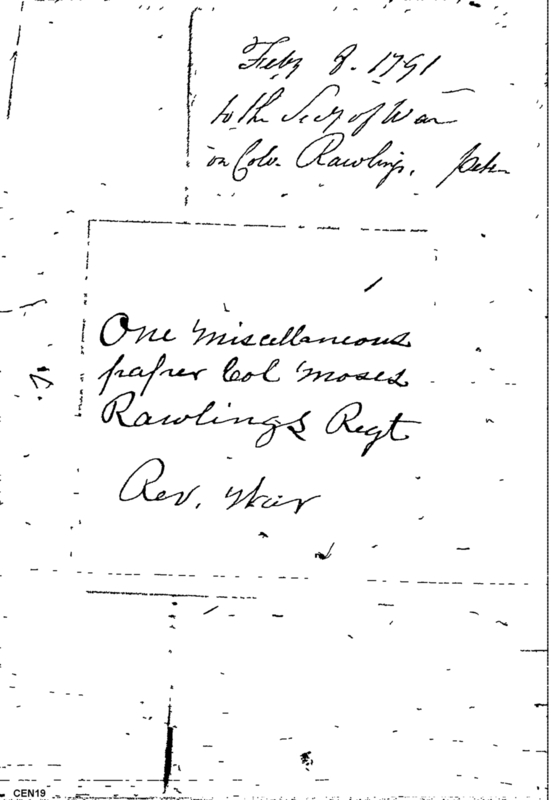 Feby 8. 1791
to the Secy of War
on Colo. Rawlings.
One miscellaneous
paper Col Moses
Rawlings Regt
Rev. War
CEN19